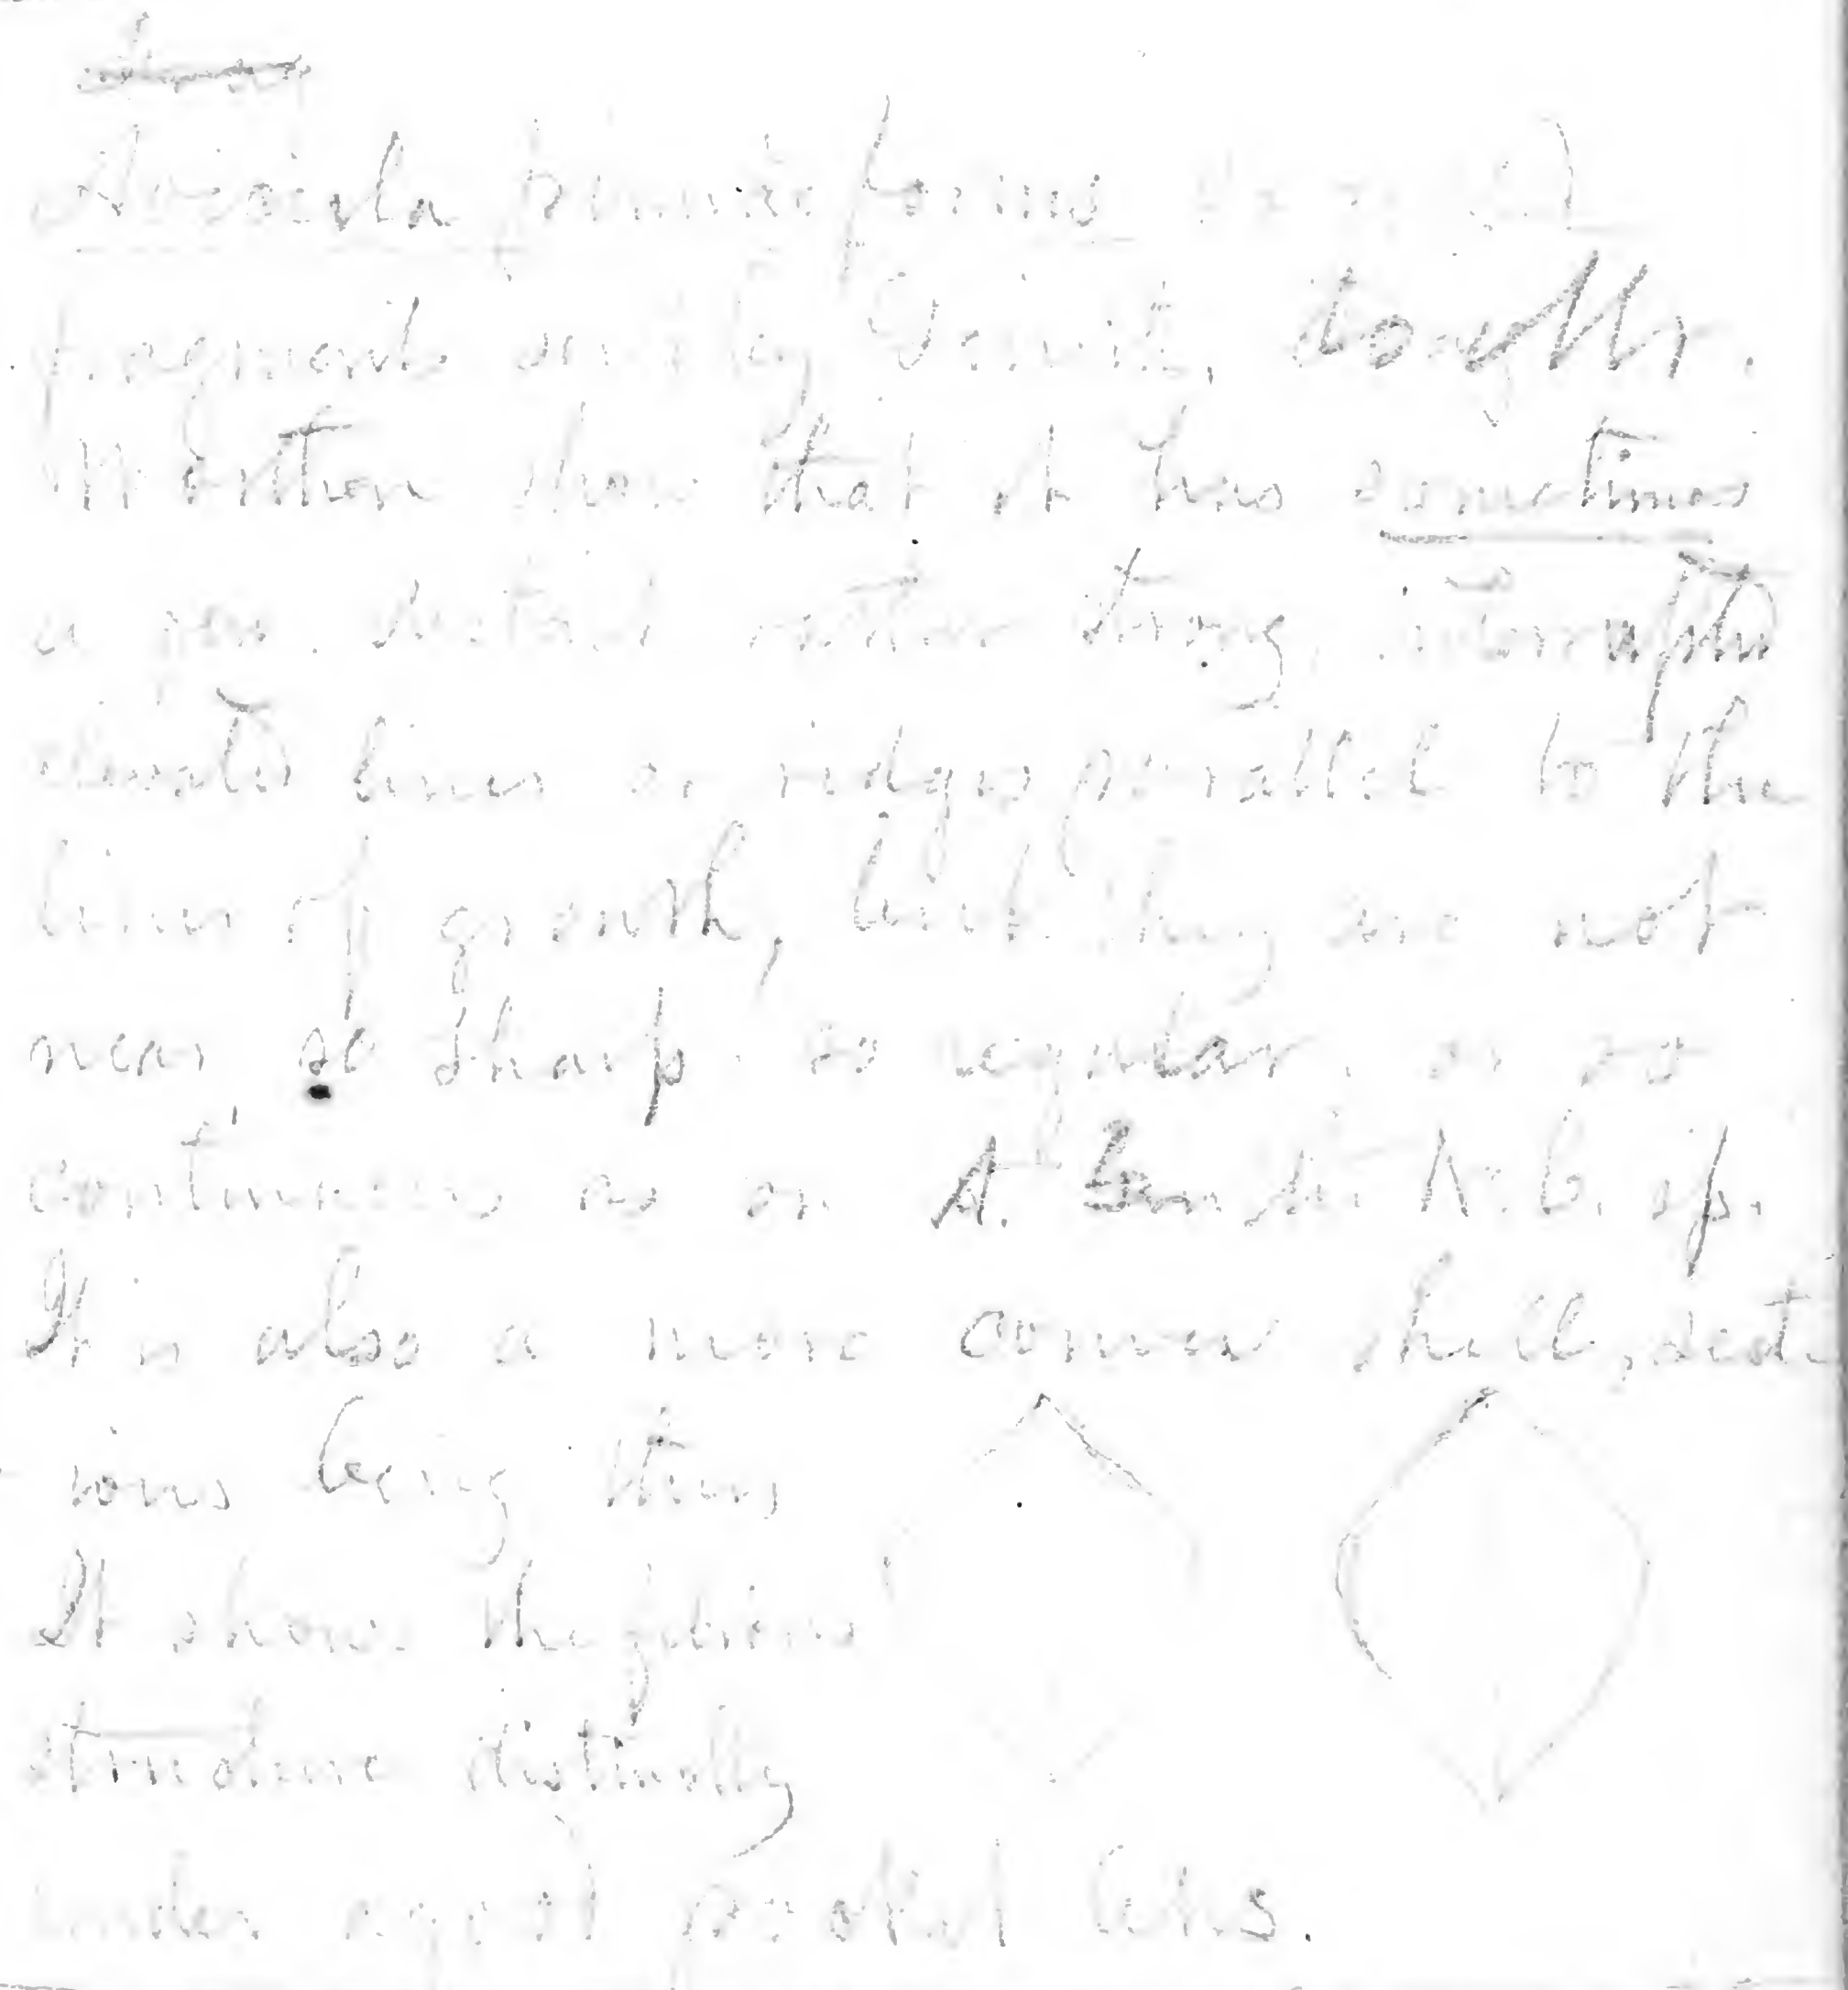 fragments sent by
Morton show that it has sometimes
a few distinct rather strong, interrupted
elevated lines or ridges parallel to the
lines of growth, but they are not
near so sharp. so regular, or so
continuous as on A. N. C. sp.
It is also a more convex shell, sect
ions being thus
It shows the fibrous
structure distinctly
under a good pocket lens.